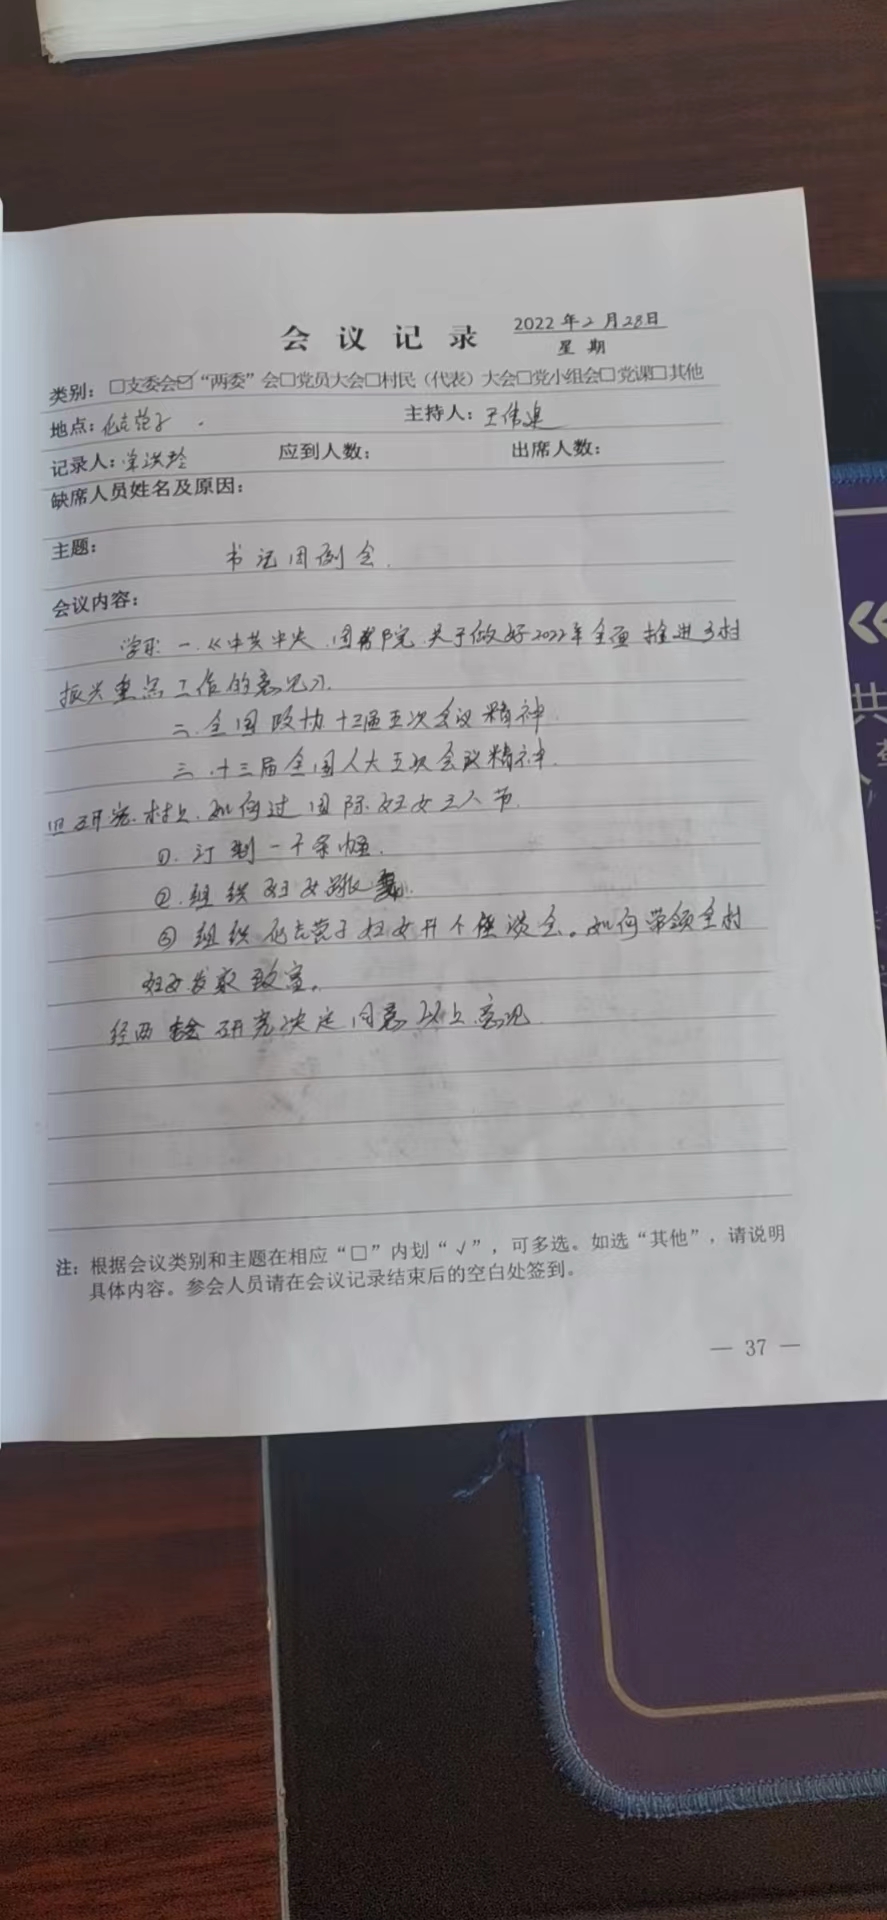 会议记录 2022年2月28日
星期
类别：□支委会☑“两委”会□党员大会□村民（代表）大会□党小组会□党课□其他
地点： 主持人：王伟建
记录人： 应到人数： 出席人数：
缺席人员姓名及原因：
主题：
书记周例会.
会议内容：
学习 一.《中共中央.国务院.关于做好2022年全面推进乡村
振兴重点工作的意见》.
二.全国政协十三届五次会议精神.
三.十三届全国人大五次会议精神.
四研究.村上.如何过国际妇女三八节.
①.订制一千条幅.
②.组织妇女跳舞.
③组织 营子妇女开个座谈会。如何带领全村
妇女发家致富。
经两委会研究决定同意以上意见
注：根据会议类别和主题在相应“□”内划“√”，可多选。如选“其他”，请说明
具体内容。参会人员请在会议记录结束后的空白处签到。
— 37 —
《
共